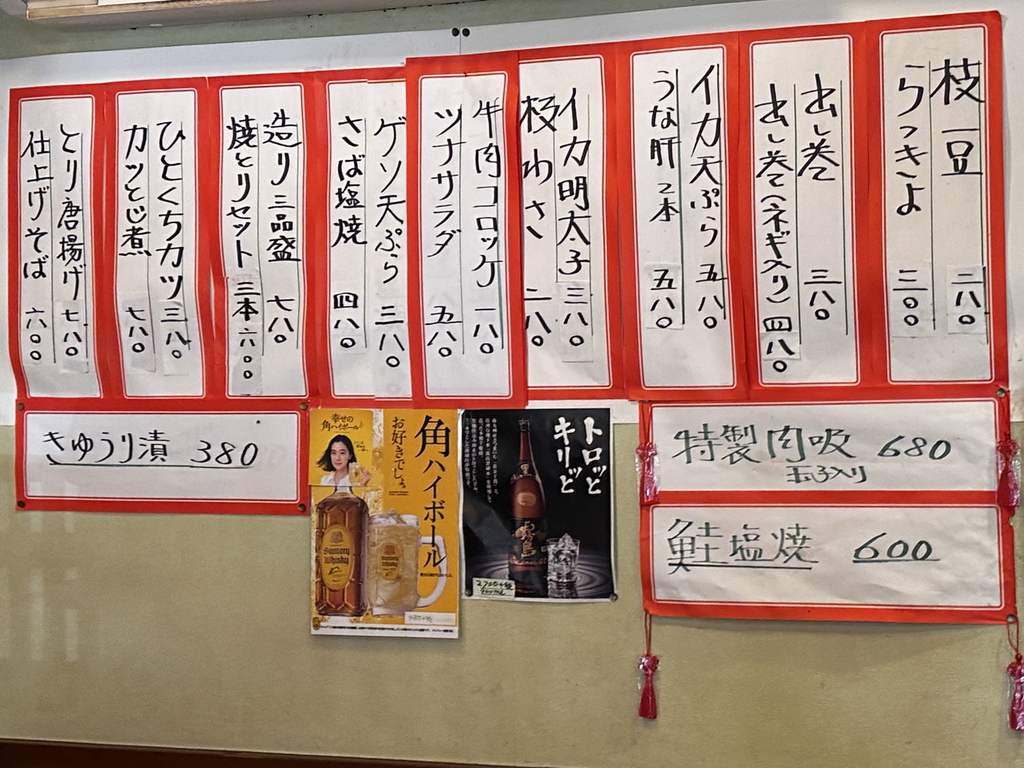 枝豆 二八〇
らっきょ 三〇〇
出し巻 三八〇
出し巻(ネギ入り) 四八〇
イカ天ぷら 五八〇
うな肝 2本 五八〇
イカ明太子 三八〇
板わさ 二八〇
牛肉コロッケ 一八〇
ツナサラダ 五八〇
ゲソ天ぷら 三八〇
さば塩焼 四八〇
造り三品盛 七八〇
焼とりセット 三本 六〇〇
ひとくちカツ 三八〇
カツとじ煮 七八〇
とり唐揚げ 七八〇
仕上げそば 六〇〇
きゅうり漬 380
幸せの
角ハイボール
角ハイボール
お好きでしょ。
Suntory
Whisky
トロッと
キリッと
霧島
特製肉吸 680
玉子入り
鮭塩焼 600